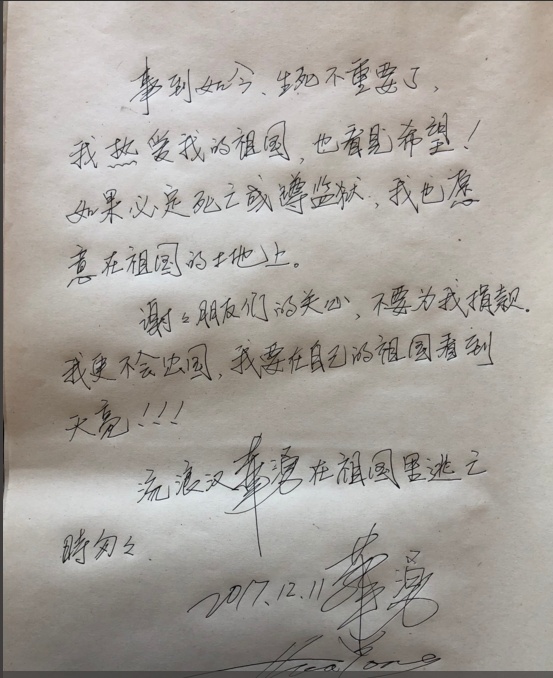 事到如今、生死不重要了，
我热爱我的祖国，也看见希望！
如果必定死亡或蹲监狱，我也愿
意在祖国的土地上。
谢々朋友们的关心，不要为我捐款．
我更不会出国，我要在自己的祖国看到
天亮！！！
流浪汉華湧在祖国里逃亡
時匆々
2017.12.11 華湧
Hua Yong